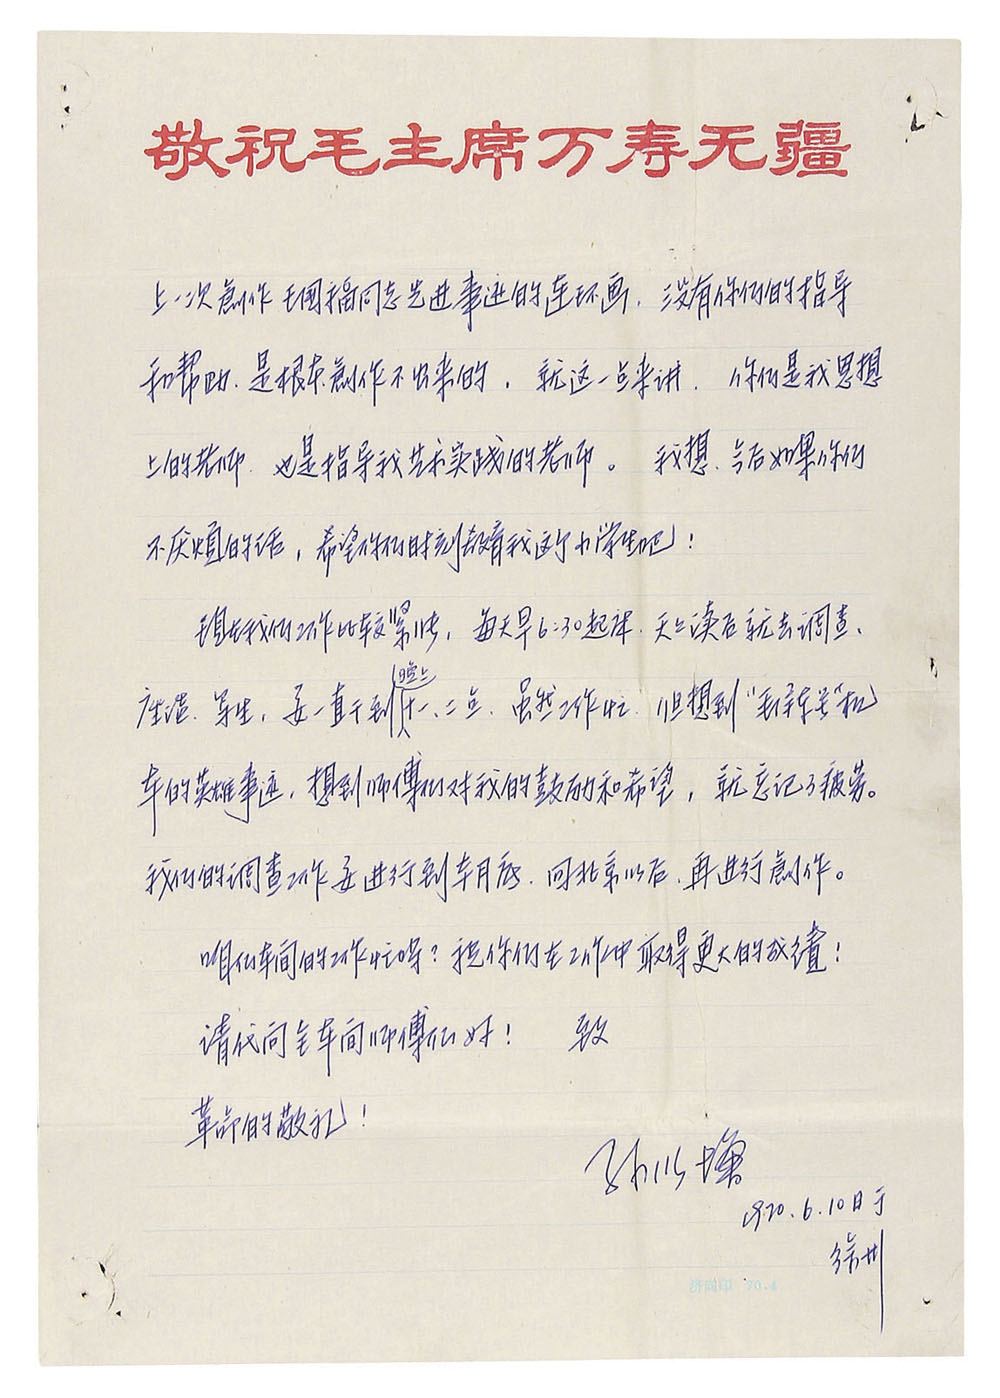 敬祝毛主席万寿无疆
上一次創作王國福同志先进事迹的连环画，没有你们的指导
和帮助，是根本創作不出来的，就这一点来讲，你们是我思想
上的老师，也是指导我艺术实践的老师。我想，今后如果你们
不厌烦的话，希望你们时刻教育我这个小学生吧！
现在我们工作比较紧张，每天早6:30起床，天天读后就去调查、
座谈、写生，要一直干到晚上十一、二点，虽然工作忙，但想到“毛泽东号”机
车的英雄事迹，想到师傅们对我的鼓励和希望，就忘记了疲劳。
我们的调查工作要进行到本月底，回北京以后，再进行創作。
咱们车间的工作忙吗？祝你们在工作中取得更大的成绩！
请代向全车间师傅们好！ 致
革命的敬礼！
孙以增
1970.6.10日于
徐州
济尚印 70.4